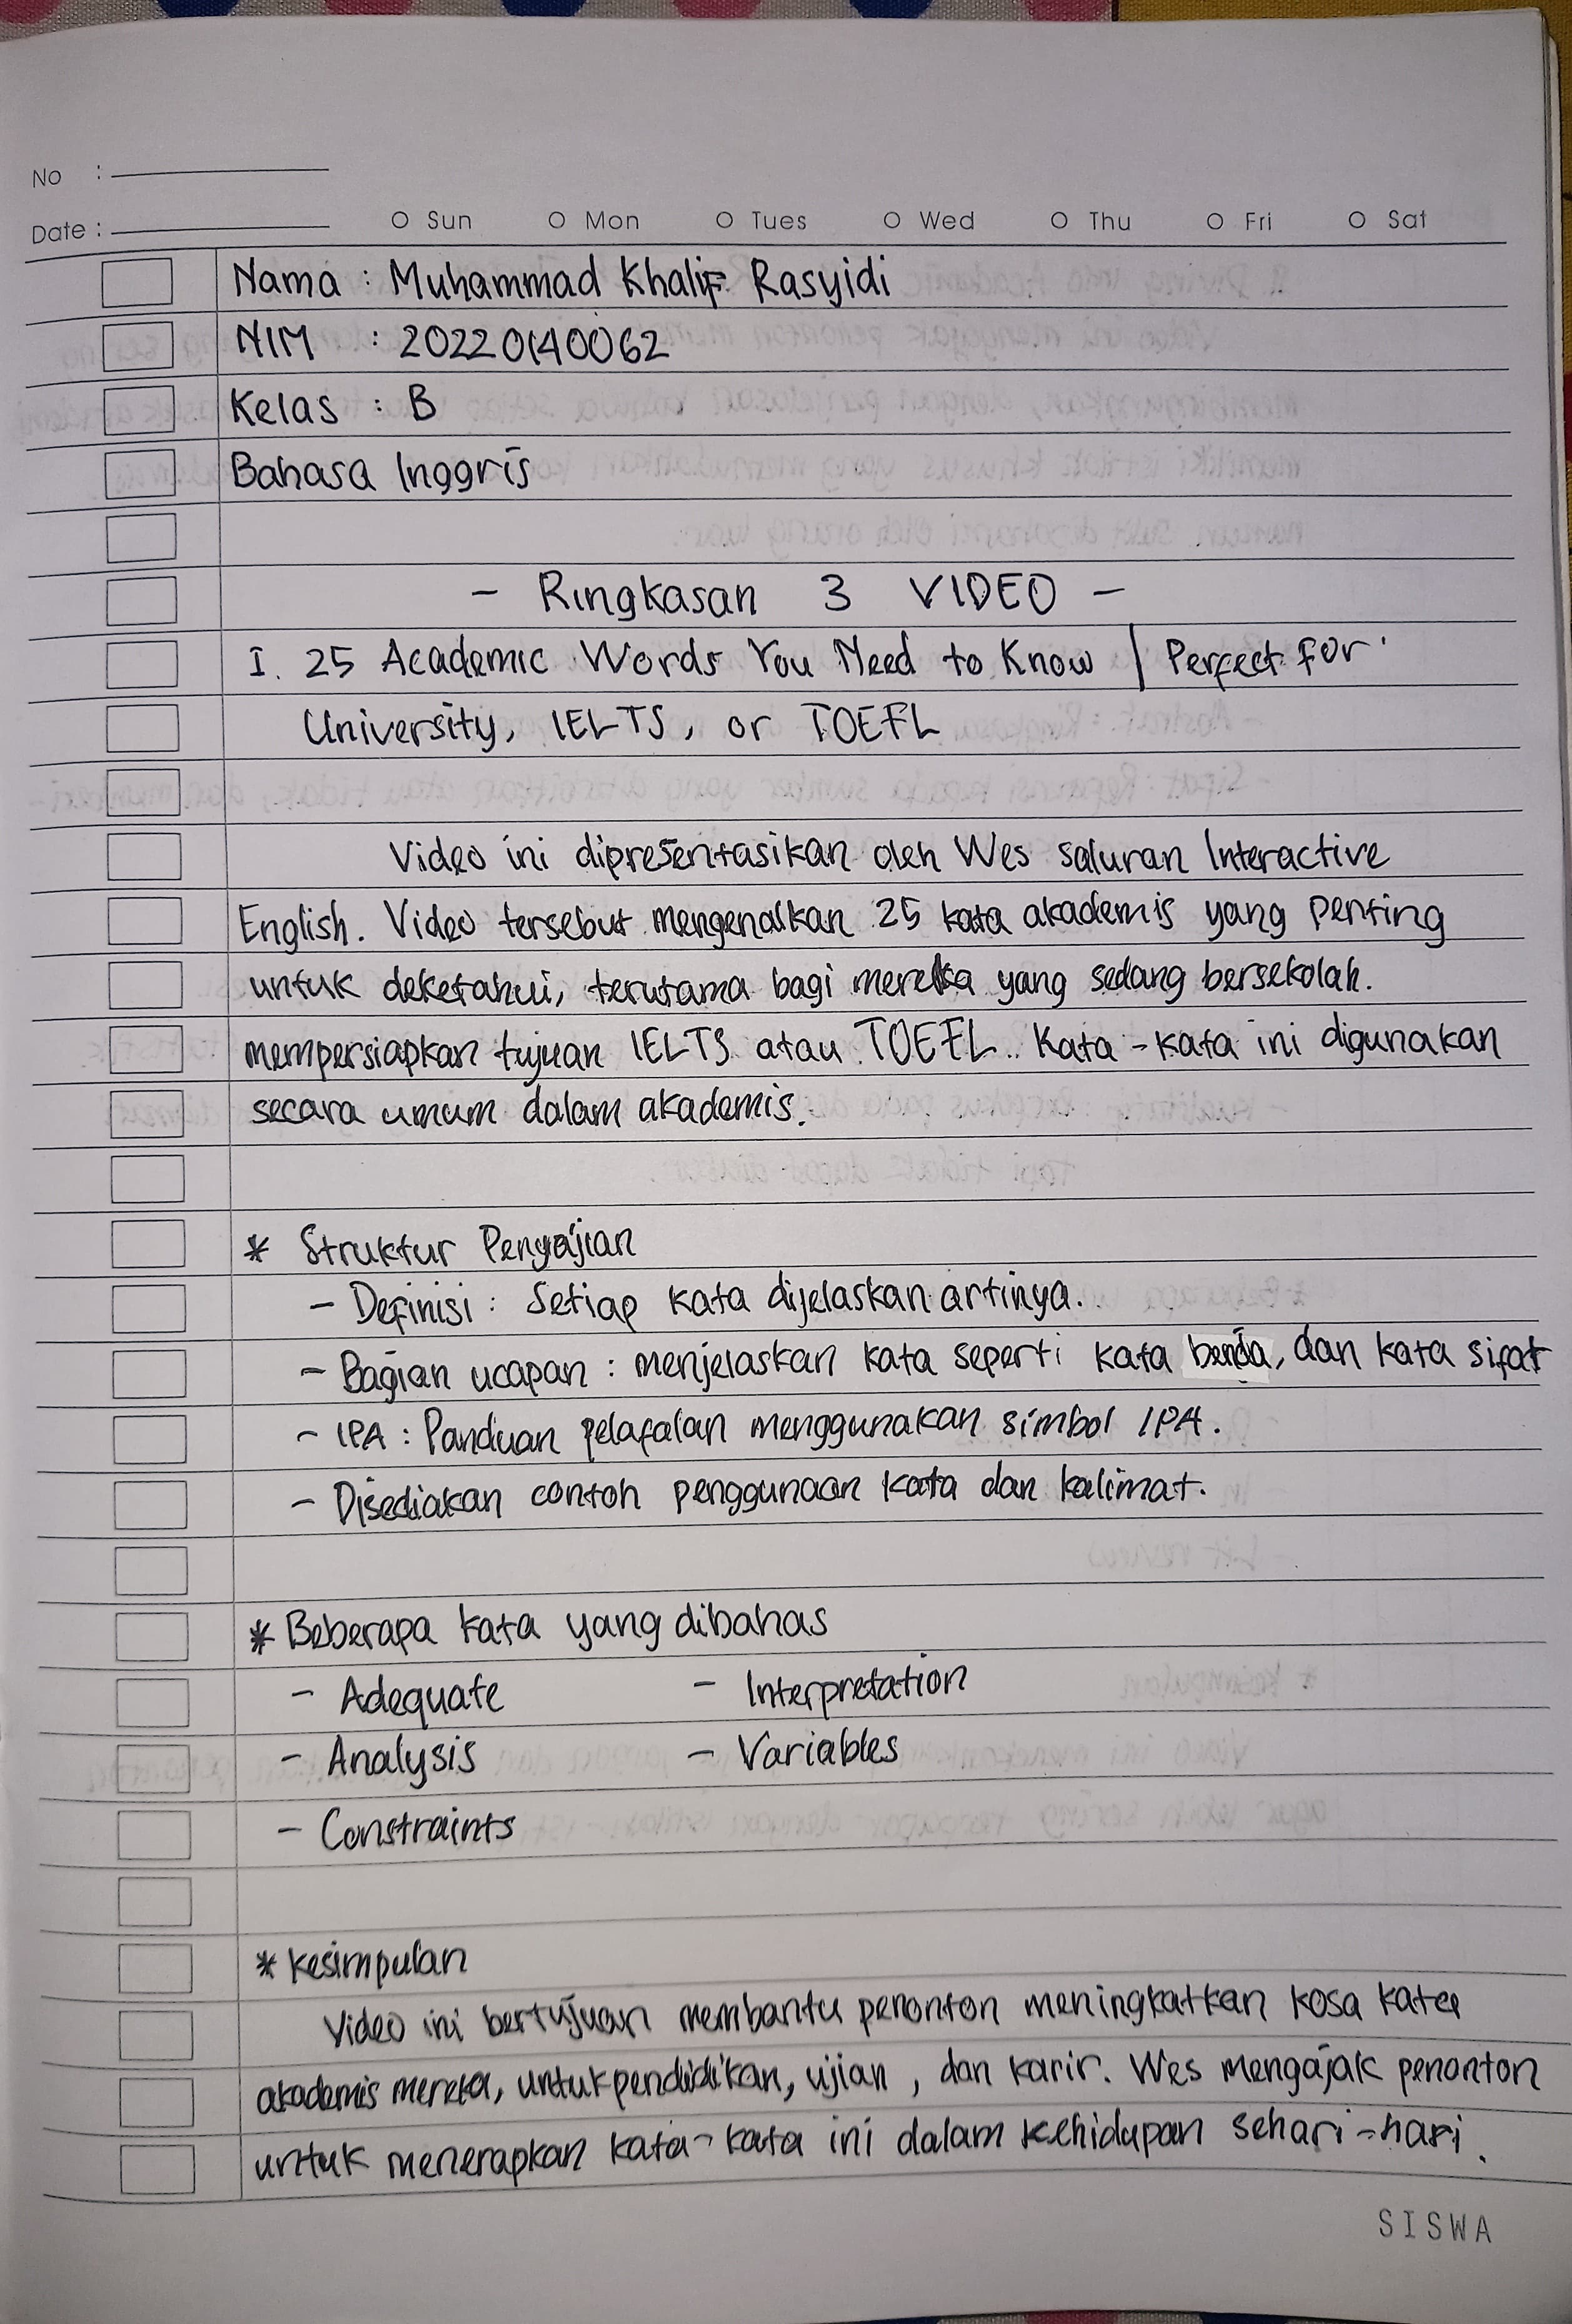 No :
Date : O Sun O Mon O Tues O Wed O Thu O Fri O Sat
Nama : Muhammad Khalif Rasyidi
NIM : 20220140062
Kelas : B
Bahasa Inggris
- Ringkasan 3 VIDEO -
I. 25 Academic Words You Need to Know | Perfect for
University, IELTS, or TOEFL
Video ini dipresentasikan oleh Wes saluran Interactive
English. Video tersebut mengenalkan 25 kata akademis yang penting
untuk deketahui, terutama bagi mereka yang sedang bersekolah.
mempersiapkan tujuan IELTS atau TOEFL. Kata-kata ini digunakan
secara umum dalam akademis.
* Struktur Penyajian
- Definisi : Setiap kata dijelaskan artinya.
- Bagian ucapan : menjelaskan kata seperti kata benda, dan kata sifat
- IPA : Panduan pelafalan menggunakan simbol IPA.
- Disediakan contoh penggunaan kata dan kalimat.
* Beberapa kata yang dibahas
- Adequate - Interpretation
- Analysis - Variables
- Constraints
* Kesimpulan
Video ini bertujuan membantu penonton meningkatkan kosa kata
akademis mereka, untuk pendidikan, ujian, dan karir. Wes mengajak penonton
untuk menerapkan kata-kata ini dalam kehidupan sehari-hari.
SISWA